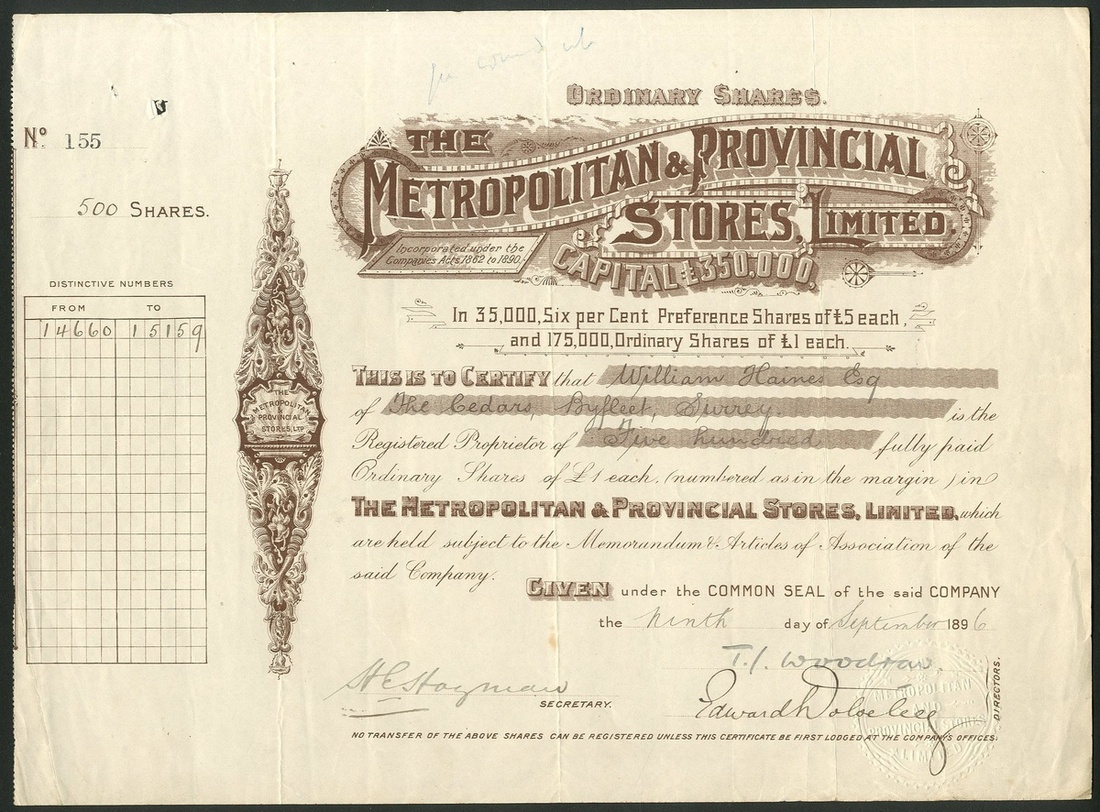 ORDINARY SHARES.
Nº 155
THE
METROPOLITAN & PROVINCIAL
STORES, LIMITED.
500 SHARES.
Incorporated under the
Companies Acts, 1862 to 1890.
CAPITAL £350,000,
DISTINCTIVE NUMBERS
FROM TO
14660 15159
In 35,000, Six per Cent Preference Shares of £5 each,
and 175,000, Ordinary Shares of £1 each.
THIS IS TO CERTIFY that William Haines Esq
of The Cedars, Byfleet, Surrey. is the
Registered Proprietor of Five hundred fully paid
Ordinary Shares of £1 each, (numbered as in the margin) in
THE METROPOLITAN & PROVINCIAL STORES, LIMITED, which
are held subject to the Memorandum & Articles of Association of the
said Company.
THE
METROPOLITAN
&
PROVINCIAL
STORES, LTD
GIVEN under the COMMON SEAL of the said COMPANY
the Ninth day of September 1896
T. J. Woodrow.
SECRETARY.
Edward
DIRECTORS.
METROPOLITAN
AND
PROVINCIAL STORES
LIMITED
NO TRANSFER OF THE ABOVE SHARES CAN BE REGISTERED UNLESS THIS CERTIFICATE BE FIRST LODGED AT THE COMPANY'S OFFICES.